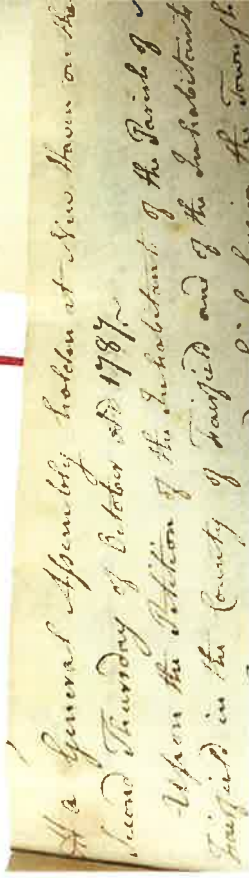 At a General Assembly holden at New Haven on the
second Thursday of October AD 1787.~
Upon the Petition of the Inhabitants of the Parish of
Fairfield in the County of Fairfield and of the Inhabitants
the Township